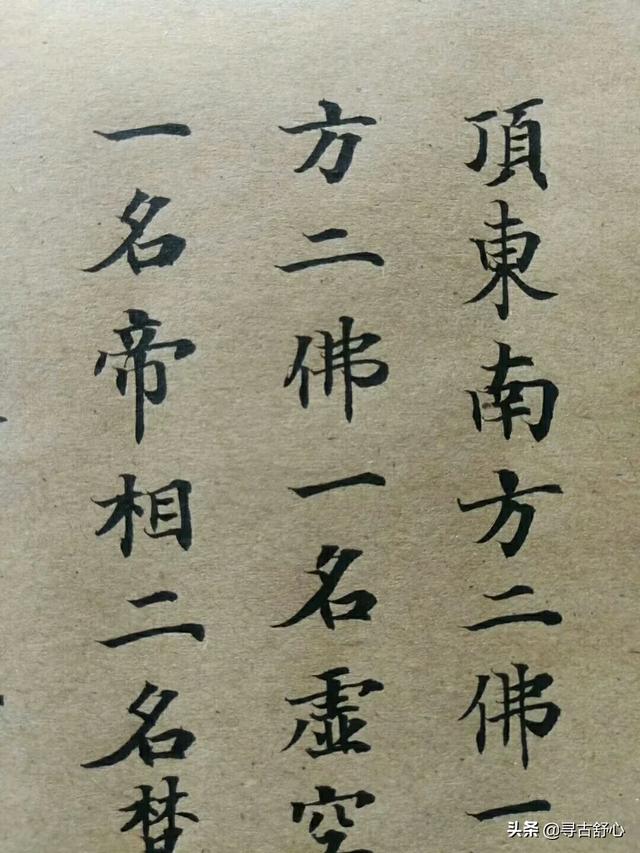 頂東南方二佛一
方二佛一名虛空
一名帝相二名梵
头条 @寻古舒心